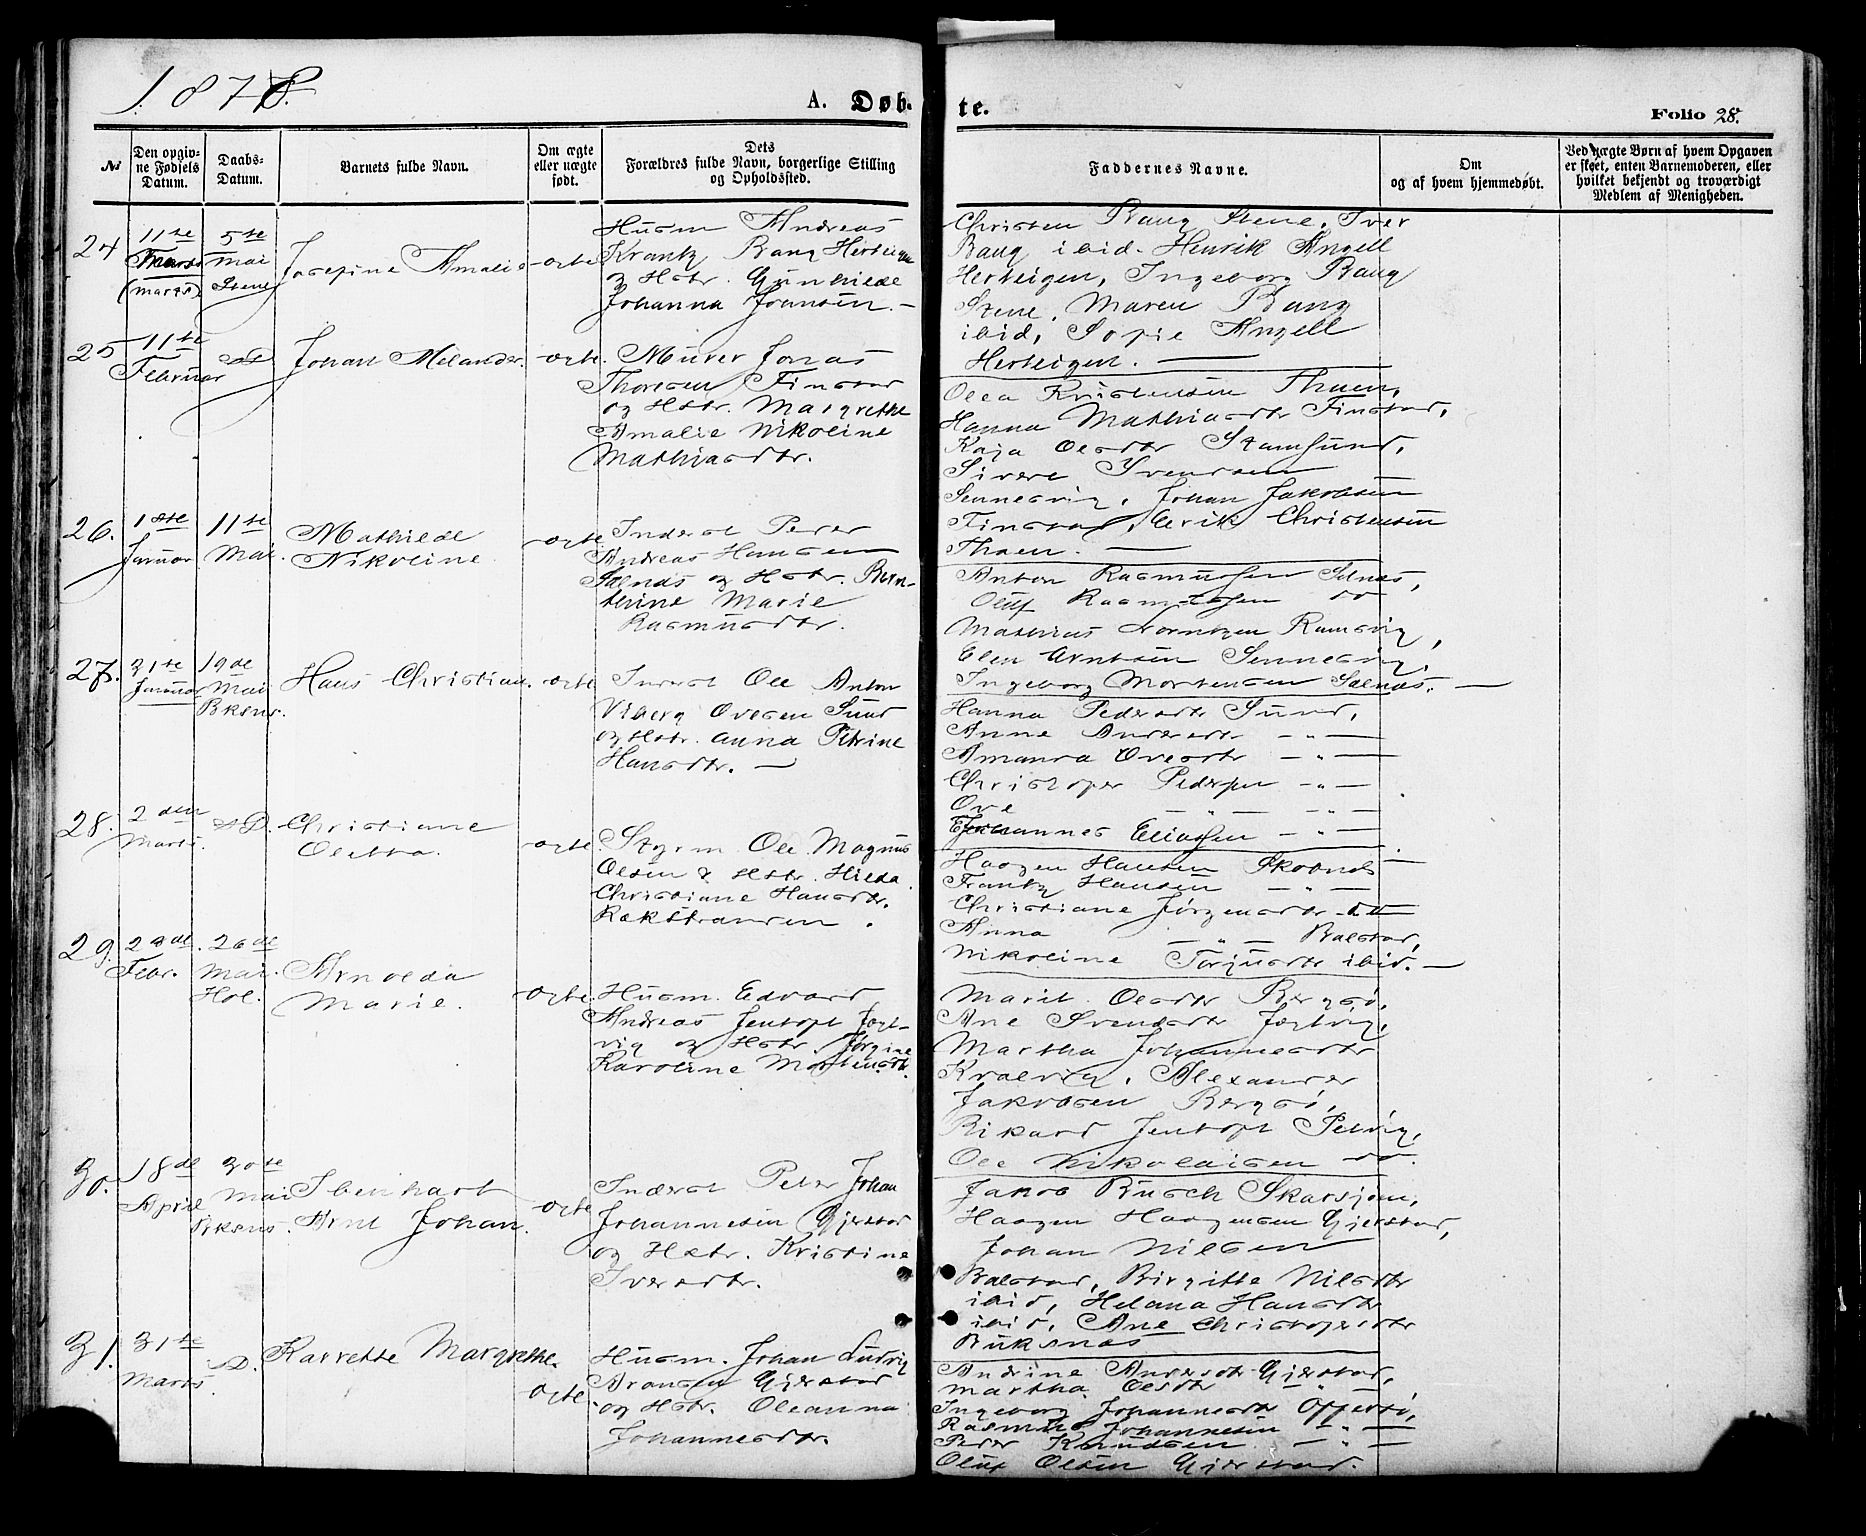 1878.
A. Døb-
te.
Folio 28.
No
Den opgiv-
ne Fødsels
Datum.
Daabs-
Datum.
Barnets fulde Navn.
Om ægte
eller uægte
født.
Dets
Forældres fulde Navn, borgerlige Stilling
og Opholdssted.
Faddernes Navne.
Om
og af hvem hjemmedøbt.
Ved uægte Børn af hvem Opgaven
er skeet, enten Barnemoderen, eller
hvilket bekjendt og troværdigt
Medlem af Menigheden.
24
11te
Marts
(Marts)
5te
Mai
Stene
Josefine Amalie
ægte
Husm Andreas
Krantz Bang Herteigen
og Hstr. Gunhilde
Johanna Johnsen. —
Christen Bang Stene, Iver
Bang ibid. Henrik Angell
Herteigen, Ingeborg Bang
Stene, Maren Bang
ibid, Sofie Angell
Herteigen. —
25
11te
Februar
sD
Johan Melander.
ægte.
Murer Jonas
Thoresen Finstad
og Hstr. Margrethe
Amalie Nikoline
Mathiasdtr.
Olea Kristensen Thuen,
Hanna Mathiasdtr Finstad,
Kaja Olsdtr Stamsund,
Sivert Svendsen
Sennesvig, Johan Jakobsen
Finstad, Erik Christensen
Thuen. —
26.
18te
Januar
11te
Mai.
Mathilde
Nikoline
ægte
Inderst Peder
Andreas Hansen
Solnæs og Hstr. Bern-
thine Marie
Rasmusdtr.
Anton Rasmussen Solnæs,
Oluf Rasmussen do
Mathias Lorntzen Ramsvig,
Elen Arntsen Sennesvig,
Ingeborg Mortensen Solnæs. —
27.
31te
Januar
19de
Mai
Bksns.
Hans Christian.
ægte
Inderst Ole Anton
Viberg Ovesen Sund
og Hstr. Anna Petrine
Hansdtr. —
Hanna Pedersdtr Sund,
Anne Andersdtr — " —
Amanda Ovesdtr — " —
Christoper Pedersen — " —
Ove — " — — " —
Johannes Eliassen — " —
28.
2den
Marts.
sD.
Christiane
Oletta.
ægte.
Styrm Ole Magnus
Olsen & Hstr. Hilda
Christiane Hansdtr.
Rækstranden.
Haagen Hansen Skotnes
Frantz Hansen — " —
Christiane Jörgensdtr do
Anna — " — Balstad,
Nikoline Torjusdtr ibid. —
29.
Febr.
26de
Mai.
Hol.
Arnolda
Marie.
ægte.
Husm. Edvard
Andreas Jentoft Jægt-
vig og Hstr. Jørgine
Karoline Mortensdtr.
Marit Olsdtr Bergsö,
Ane Svendsdtr Jægtvig,
Martha Johannesdtr
Kvalvig, Alexander
Jakobsen Bergsö,
Rikard Jentoft Petvig,
Ole Nikolaisen do.
30.
18de
April
30te
Mai
Bksns.
Ibenhart
Arnt Johan.
ægte
Inderst Peter Johan
Johannesen Gjerstad
og Hstr. Kristine
Iversdtr.
Jakob Busch Skarsjøen,
Haagen Haagensen Gjerstad,
Johan Nilsen
Balstad, Birgitte Nilsdtr
ibid, Helana Hansdtr
ibid, Ane Christopersdtr
Buksnæs
31.
31te
Marts
sD.
Karrette Margrethe.
ægte.
Husm. Johan Ludvig
Aronsen Gjerstad
og Hstr. Oleanna
Johannesdtr.
Andrine Andersdtr Gjerstad,
Martha Olsdtr — " —
Ingeborg Johannesdtr Offersö,
Rasmus Johannesen — " —
Peder Knudsen — " —
Oluf Olsen Gjerstad.